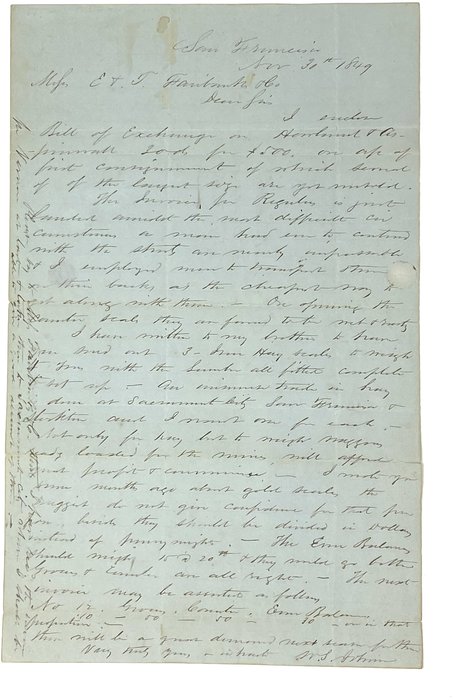 San Francisco
Nov 30th 1849
Messrs E & T. Fairbanks & Co
Dear Sirs
I enclose
Bill of Exchange on Howland & As-
pinwall 20 d. for $500. on a/c of
first consignment of which several
of the largest size are yet unsold.
The Invoice per Regulus is just
landed amidst the most difficult cir
cumstances a man had ever to contend
with the streets are nearly impassable
& I employed men to transport them
on their backs, as the cheapest way to
get along with them. — On opening the
Counter Scales they are found to be wet & rusty
I have written to my brother to have
you send out 3 - four Hay Scales to weigh
tons with the Lumber all fitted complete
to set up — An immense trade in hay
is done at Sacramento City San Francisco &
Stockton and I want one for each. —
Not only for hay, but to weigh waggons
ready loaded for the mines will afford
great profit & convenience. — I wrote you
some months ago about gold scales the
do not give confidence for that pur
pose besides they should be divided in Dollars
instead of pennyweight. — The Even Balance
should weigh 15 @ 20 lb & they would go better
Grocers & Counter are all right. — The next
invoice may be assorted as follows
No 12. Grocers, Counter, Even Balance
50 — 50 — 50 — or in that
proportion. —
there will be a great demand next season for them
Very truly yours in haste